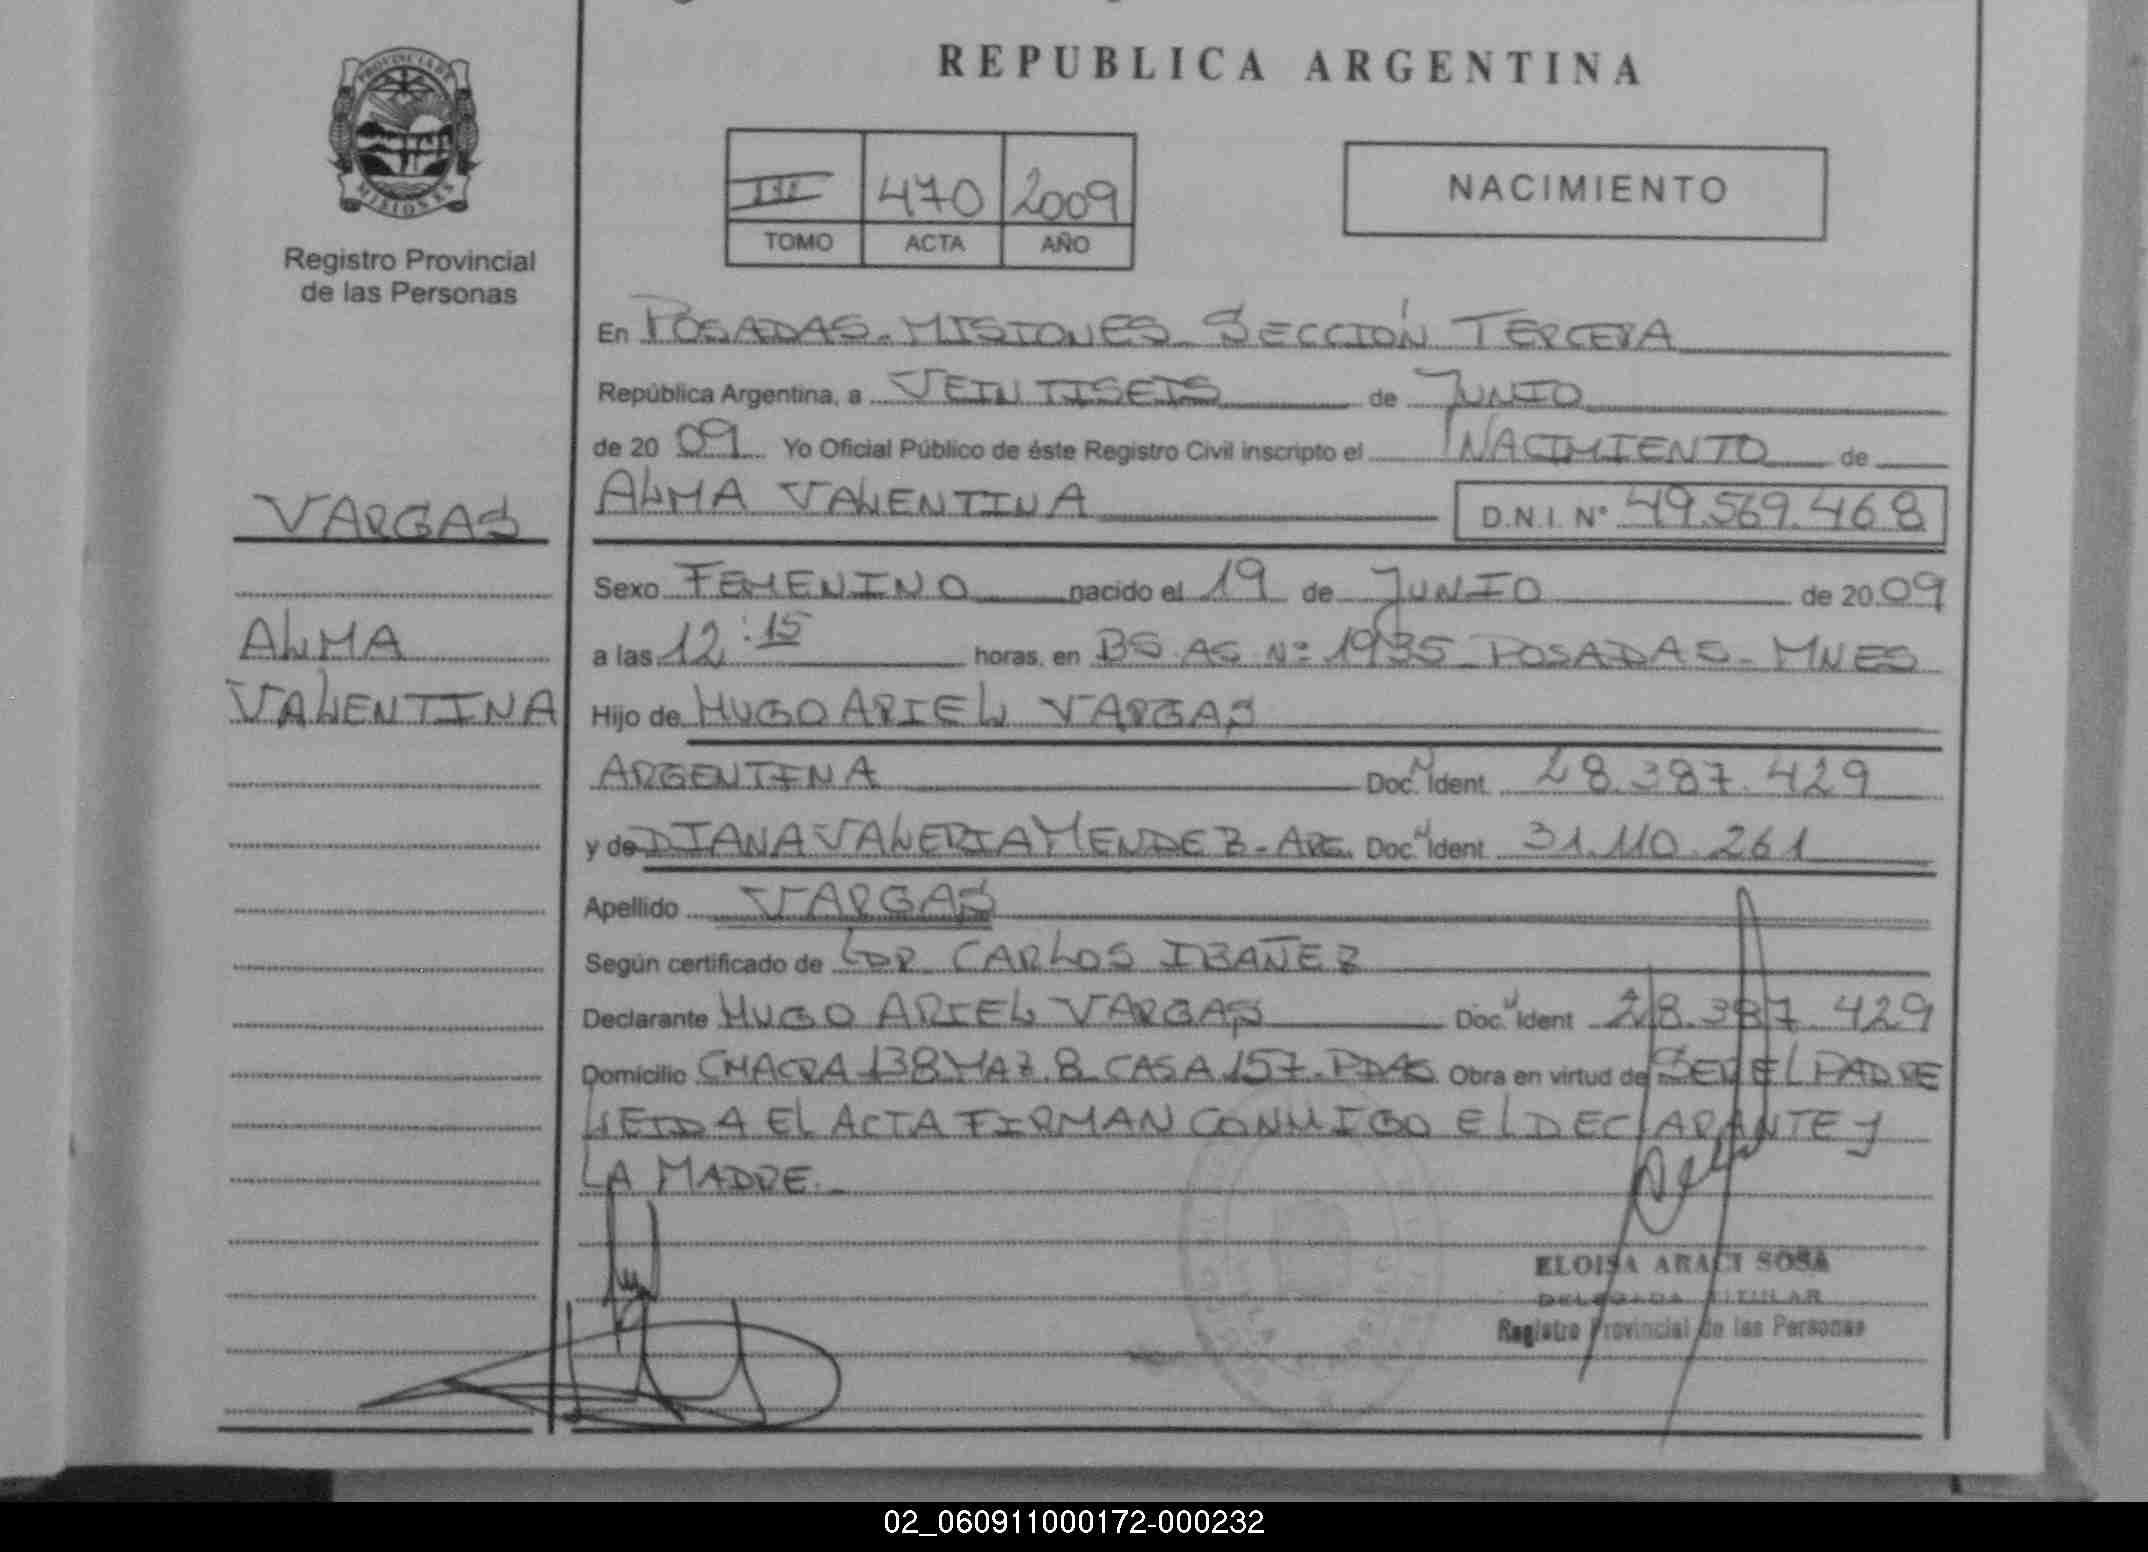 REPUBLICA ARGENTINA
PROVINCIA DE
MISIONES
Registro Provincial
de las Personas
III 470 2009
TOMO ACTA AÑO
NACIMIENTO
En POSADAS-MISIONES-SECCIÓN TERCERA
República Argentina, a VEINTISEIS de JUNIO
de 20 09 Yo Oficial Público de éste Registro Civil inscripto el NACIMIENTO de
VARGAS
ALMA VALENTINA D.N.I. Nº 49.569.468
Sexo FEMENINO nacido el 19 de JUNIO de 20 09
ALMA
a las 12:15 horas, en BS.AS. Nº 1935 POSADAS-MNES
VALENTINA
Hijo de HUGO ARIEL VARGAS
ARGENTINA Doc. Ident. 28.387.429
y de DIANA VALERIA MENDEZ-ARG. Doc. Ident. 31.110.261
Apellido VARGAS
Según certificado de DR CARLOS IBAÑEZ
Declarante HUGO ARIEL VARGAS Doc. Ident 28.387.429
Domicilio CHACRA 138 MAZ.8 CASA 157.PDAS Obra en virtud de SER EL PADRE
LEIDA EL ACTA FIRMAN CONMIGO EL DECLARANTE Y
LA MADRE.
ELOISA ARACI SOSA
DELEGADA TITULAR
Registro Provincial de las Personas
02_060911000172-000232